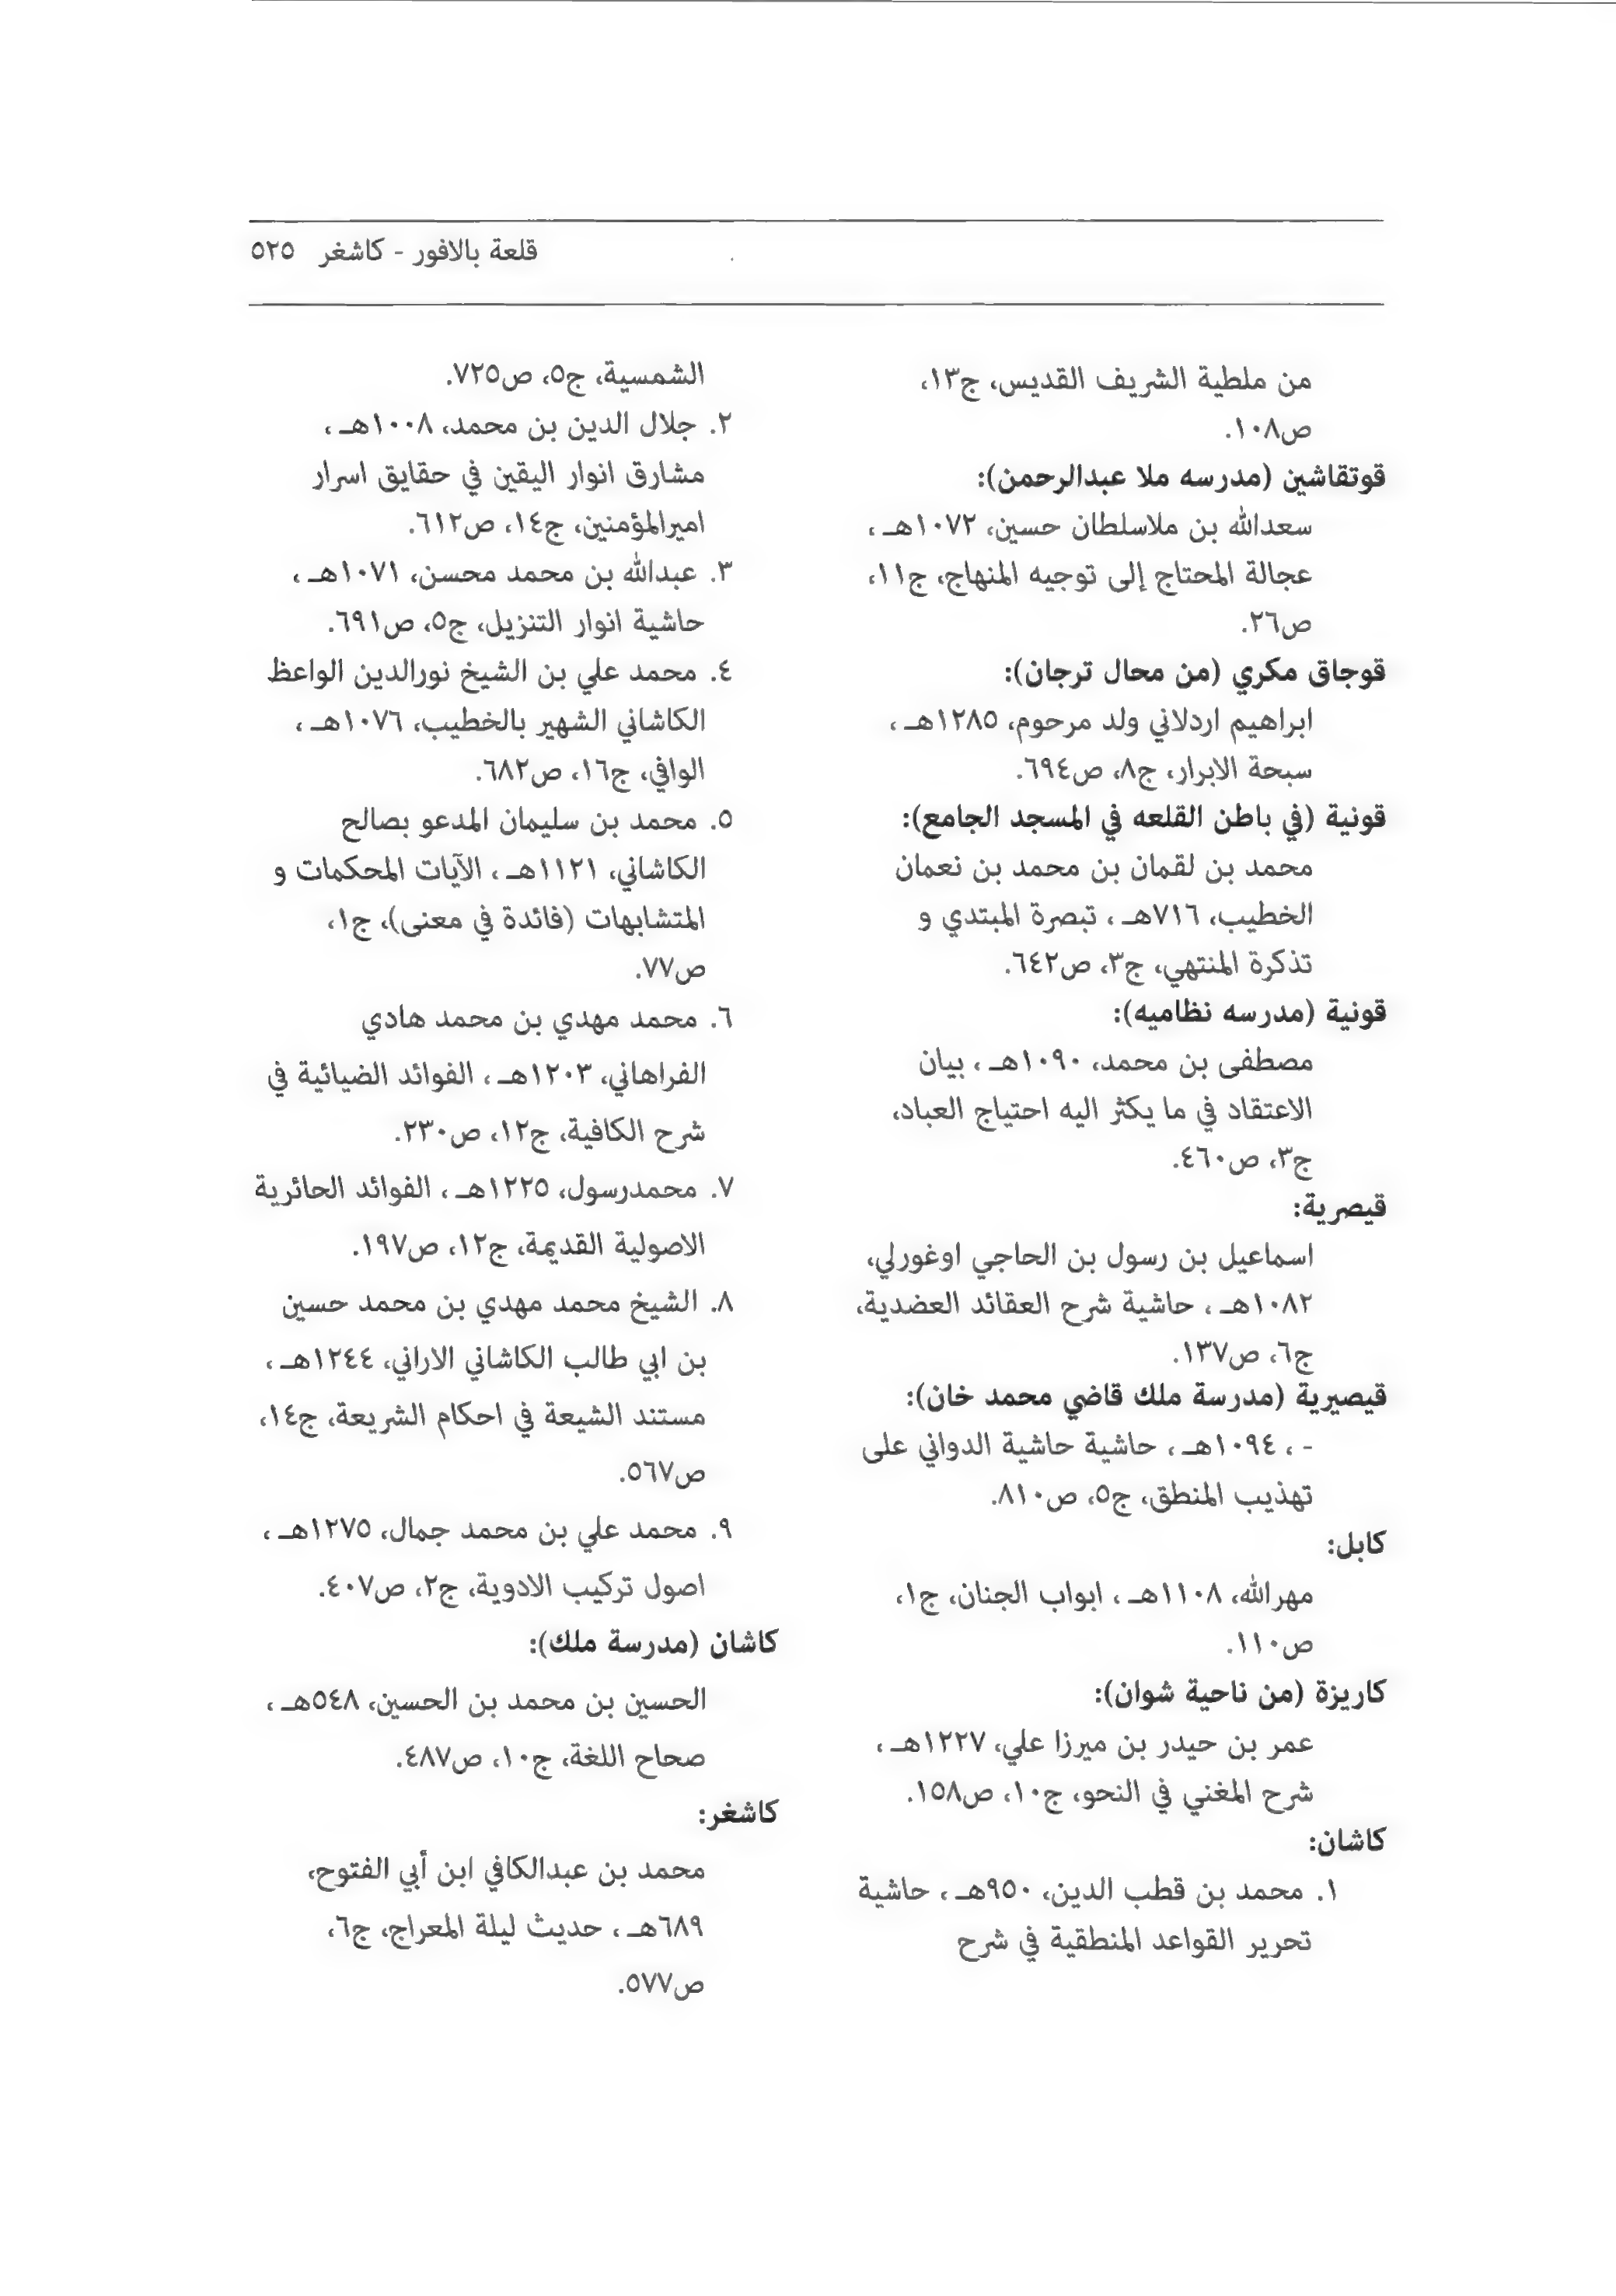 قلعة بالافور - كاشغر ٥٢٥
من ملطية الشريف القديس، ج١٣،
ص١٠٨.
قوتقاشين (مدرسه ملا عبدالرحمن):
سعدالله بن ملاسلطان حسين، ١٠٧٢هـ ،
عجالة المحتاج إلى توجيه المنهاج، ج١١،
ص٢٦.
قوجاق مكري (من محال ترجان):
ابراهيم اردلاني ولد مرحوم، ١٢٨٥هـ ،
سبحة الابرار، ج٨، ص٦٩٤.
قونية (في باطن القلعه في المسجد الجامع):
محمد بن لقمان بن محمد بن نعمان
الخطيب، ٧١٦هـ ، تبصرة المبتدي و
تذكرة المنتهي، ج٣، ص٦٤٢.
قونية (مدرسه نظاميه):
مصطفى بن محمد، ١٠٩٠هـ ، بيان
الاعتقاد في ما يكثر اليه احتياج العباد،
ج٣، ص٤٦٠.
قيصرية:
اسماعيل بن رسول بن الحاجي اوغورلي،
١٠٨٢هـ ، حاشية شرح العقائد العضدية،
ج٦، ص١٣٧.
قيصيرية (مدرسة ملك قاضي محمد خان):
- ، ١٠٩٤هـ ، حاشية حاشية الدواني على
تهذيب المنطق، ج٥، ص٨١٠.
كابل:
مهرالله، ١١٠٨هـ ، ابواب الجنان، ج١،
ص١١٠.
كاريزة (من ناحية شوان):
عمر بن حيدر بن ميرزا علي، ١٢٢٧هـ ،
شرح المغني في النحو، ج١٠، ص١٥٨.
كاشان:
١. محمد بن قطب الدين، ٩٥٠هـ ، حاشية
تحرير القواعد المنطقية في شرح
الشمسية، ج٥، ص٧٢٥.
٢. جلال الدين بن محمد، ١٠٠٨هـ ،
مشارق انوار اليقين في حقايق اسرار
اميرالمؤمنين، ج١٤، ص٦١٢.
٣. عبدالله بن محمد محسن، ١٠٧١هـ ،
حاشية انوار التنزيل، ج٥، ص٦٩١.
٤. محمد علي بن الشيخ نورالدين الواعظ
الكاشاني الشهير بالخطيب، ١٠٧٦هـ ،
الوافي، ج١٦، ص٦٨٢.
٥. محمد بن سليمان المدعو بصالح
الكاشاني، ١١٢١هـ ، الآيات المحكمات و
المتشابهات (فائدة في معنى)، ج١،
ص٧٧.
٦. محمد مهدي بن محمد هادي
الفراهاني، ١٢٠٣هـ ، الفوائد الضيائية في
شرح الكافية، ج١٢، ص٢٣٠.
٧. محمدرسول، ١٢٢٥هـ ، الفوائد الحائرية
الاصولية القديمة، ج١٢، ص١٩٧.
٨. الشيخ محمد مهدي بن محمد حسين
بن ابي طالب الكاشاني الاراني، ١٢٤٤هـ ،
مستند الشيعة في احكام الشريعة، ج١٤،
ص٥٦٧.
٩. محمد علي بن محمد جمال، ١٢٧٥هـ ،
اصول تركيب الادوية، ج٢، ص٤٠٧.
كاشان (مدرسة ملك):
الحسين بن محمد بن الحسين، ٥٤٨هـ ،
صحاح اللغة، ج١٠، ص٤٨٧.
كاشغر:
محمد بن عبدالكافي ابن أبي الفتوح،
٦٨٩هـ ، حديث ليلة المعراج، ج٦،
ص٥٧٧.